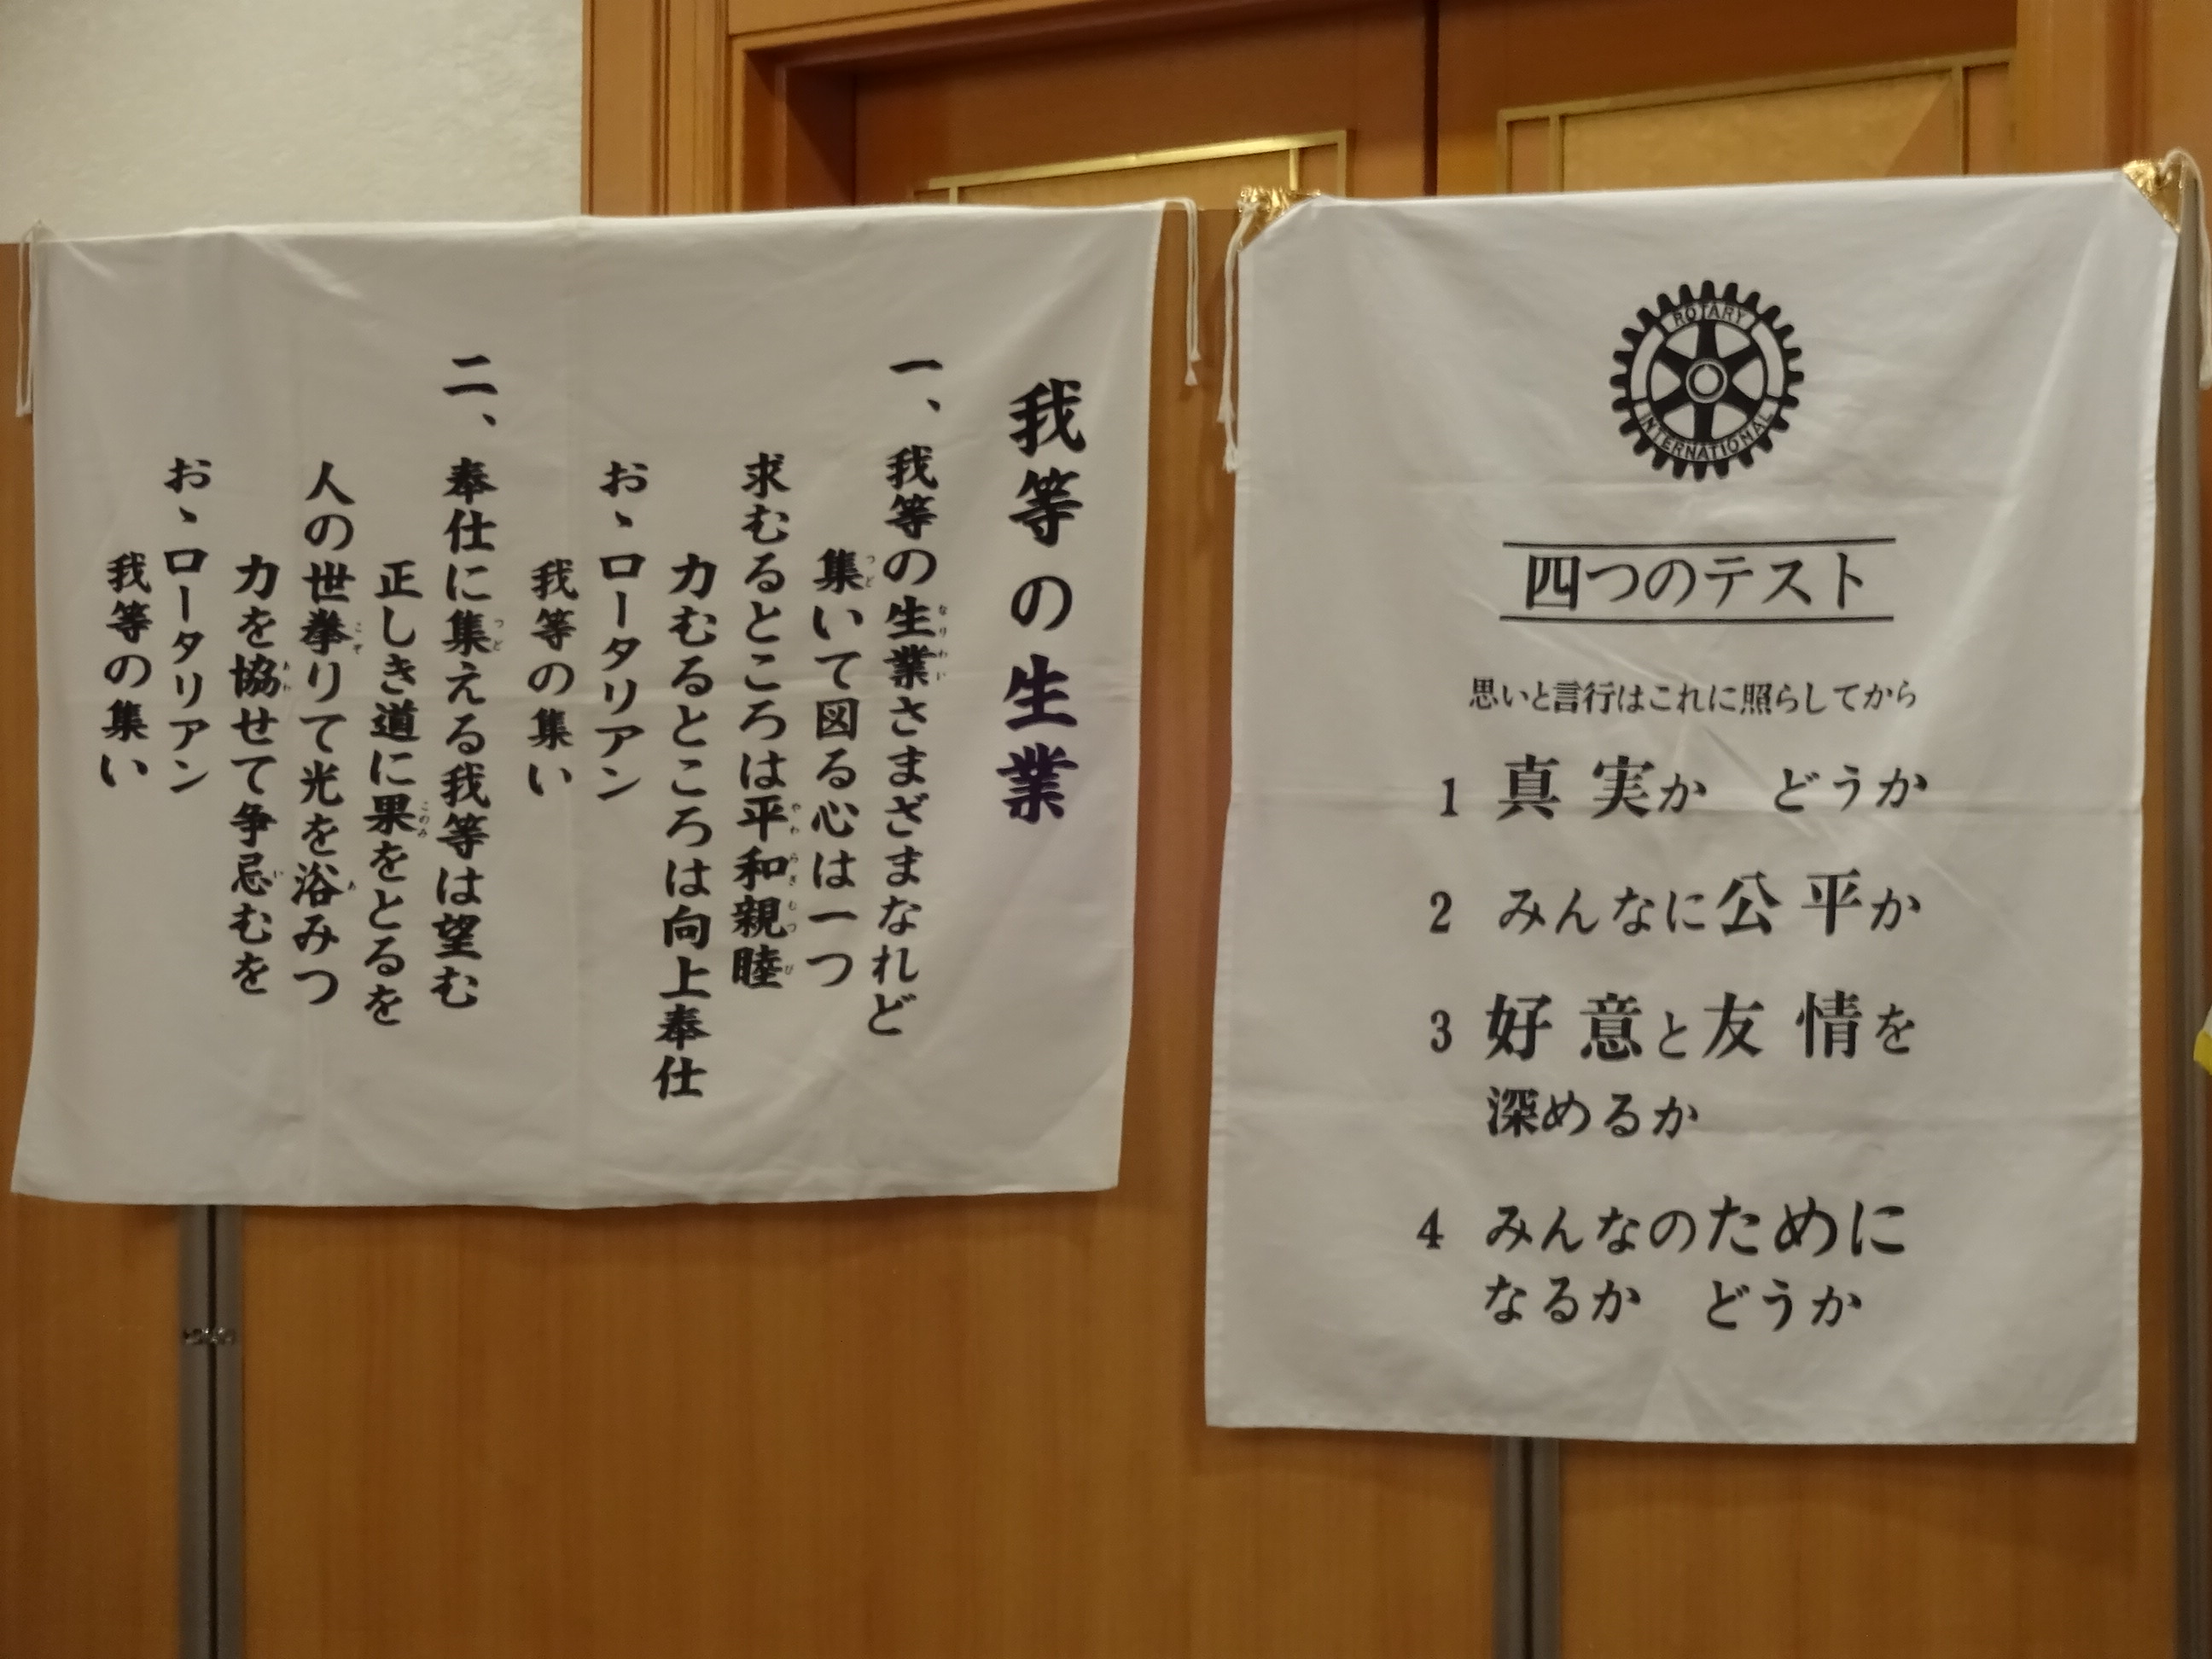 我等の生業
一、我等の生業さまざまなれど
集いて図る心は一つ
求むるところは平和親睦
力むるところは向上奉仕
おゝロータリアン
我等の集い
二、奉仕に集える我等は望む
正しき道に果をとるを
人の世挙りて光を浴みつ
力を協せて争忌むを
おゝロータリアン
我等の集い
ROTARY
INTERNATIONAL
四つのテスト
思いと言行はこれに照らしてから
1 真実か どうか
2 みんなに公平か
3 好意と友情を
深めるか
4 みんなのために
なるか どうか